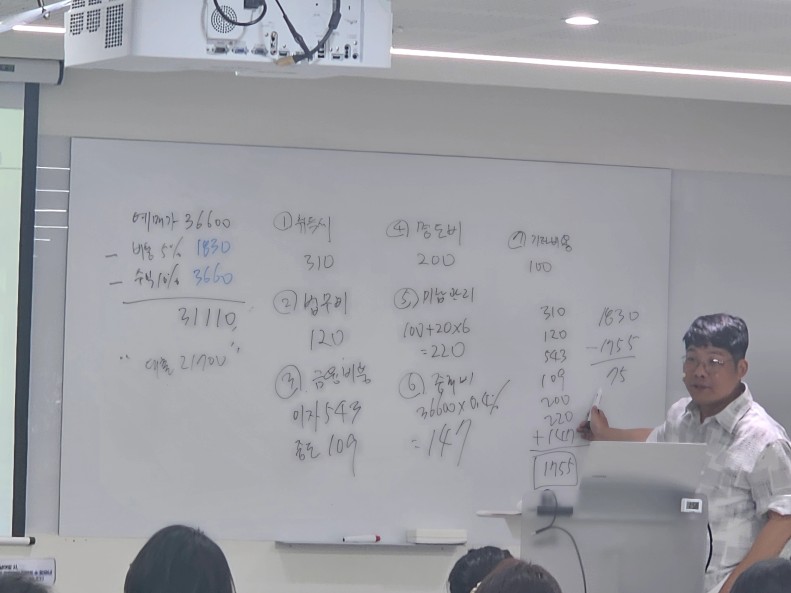 매매가 36600
- 비용 5% 1830
- 수익 10% 3660
31110
"대출 21700"
① 취득세
310
② 법무비
120
③ 금융비용
이자 543
중도 109
④ 명도비
200
⑤ 미납관리
100+20×6
=220
⑥ 중개비
36600×0.4%
=147
⑦ 기타비용
100
310
120
543
109
200
220
+147
1755
1830
-1755
75